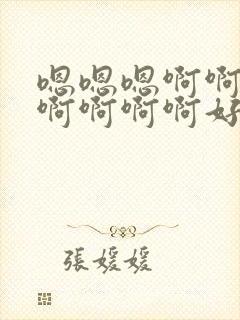 嗯嗯嗯啊啊
啊啊啊啊好
張媛媛